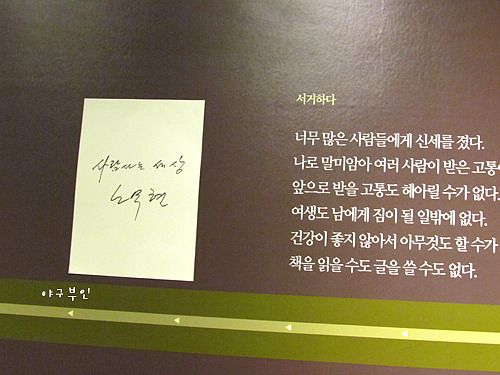 서거하다
너무 많은 사람들에게 신세를 졌다.
나로 말미암아 여러 사람이 받은 고통이
앞으로 받을 고통도 헤아릴 수가 없다.
여생도 남에게 짐이 될 일밖에 없다.
건강이 좋지 않아서 아무것도 할 수가
책을 읽을 수도 글을 쓸 수도 없다.
사람사는 세상
노무현
야구부인